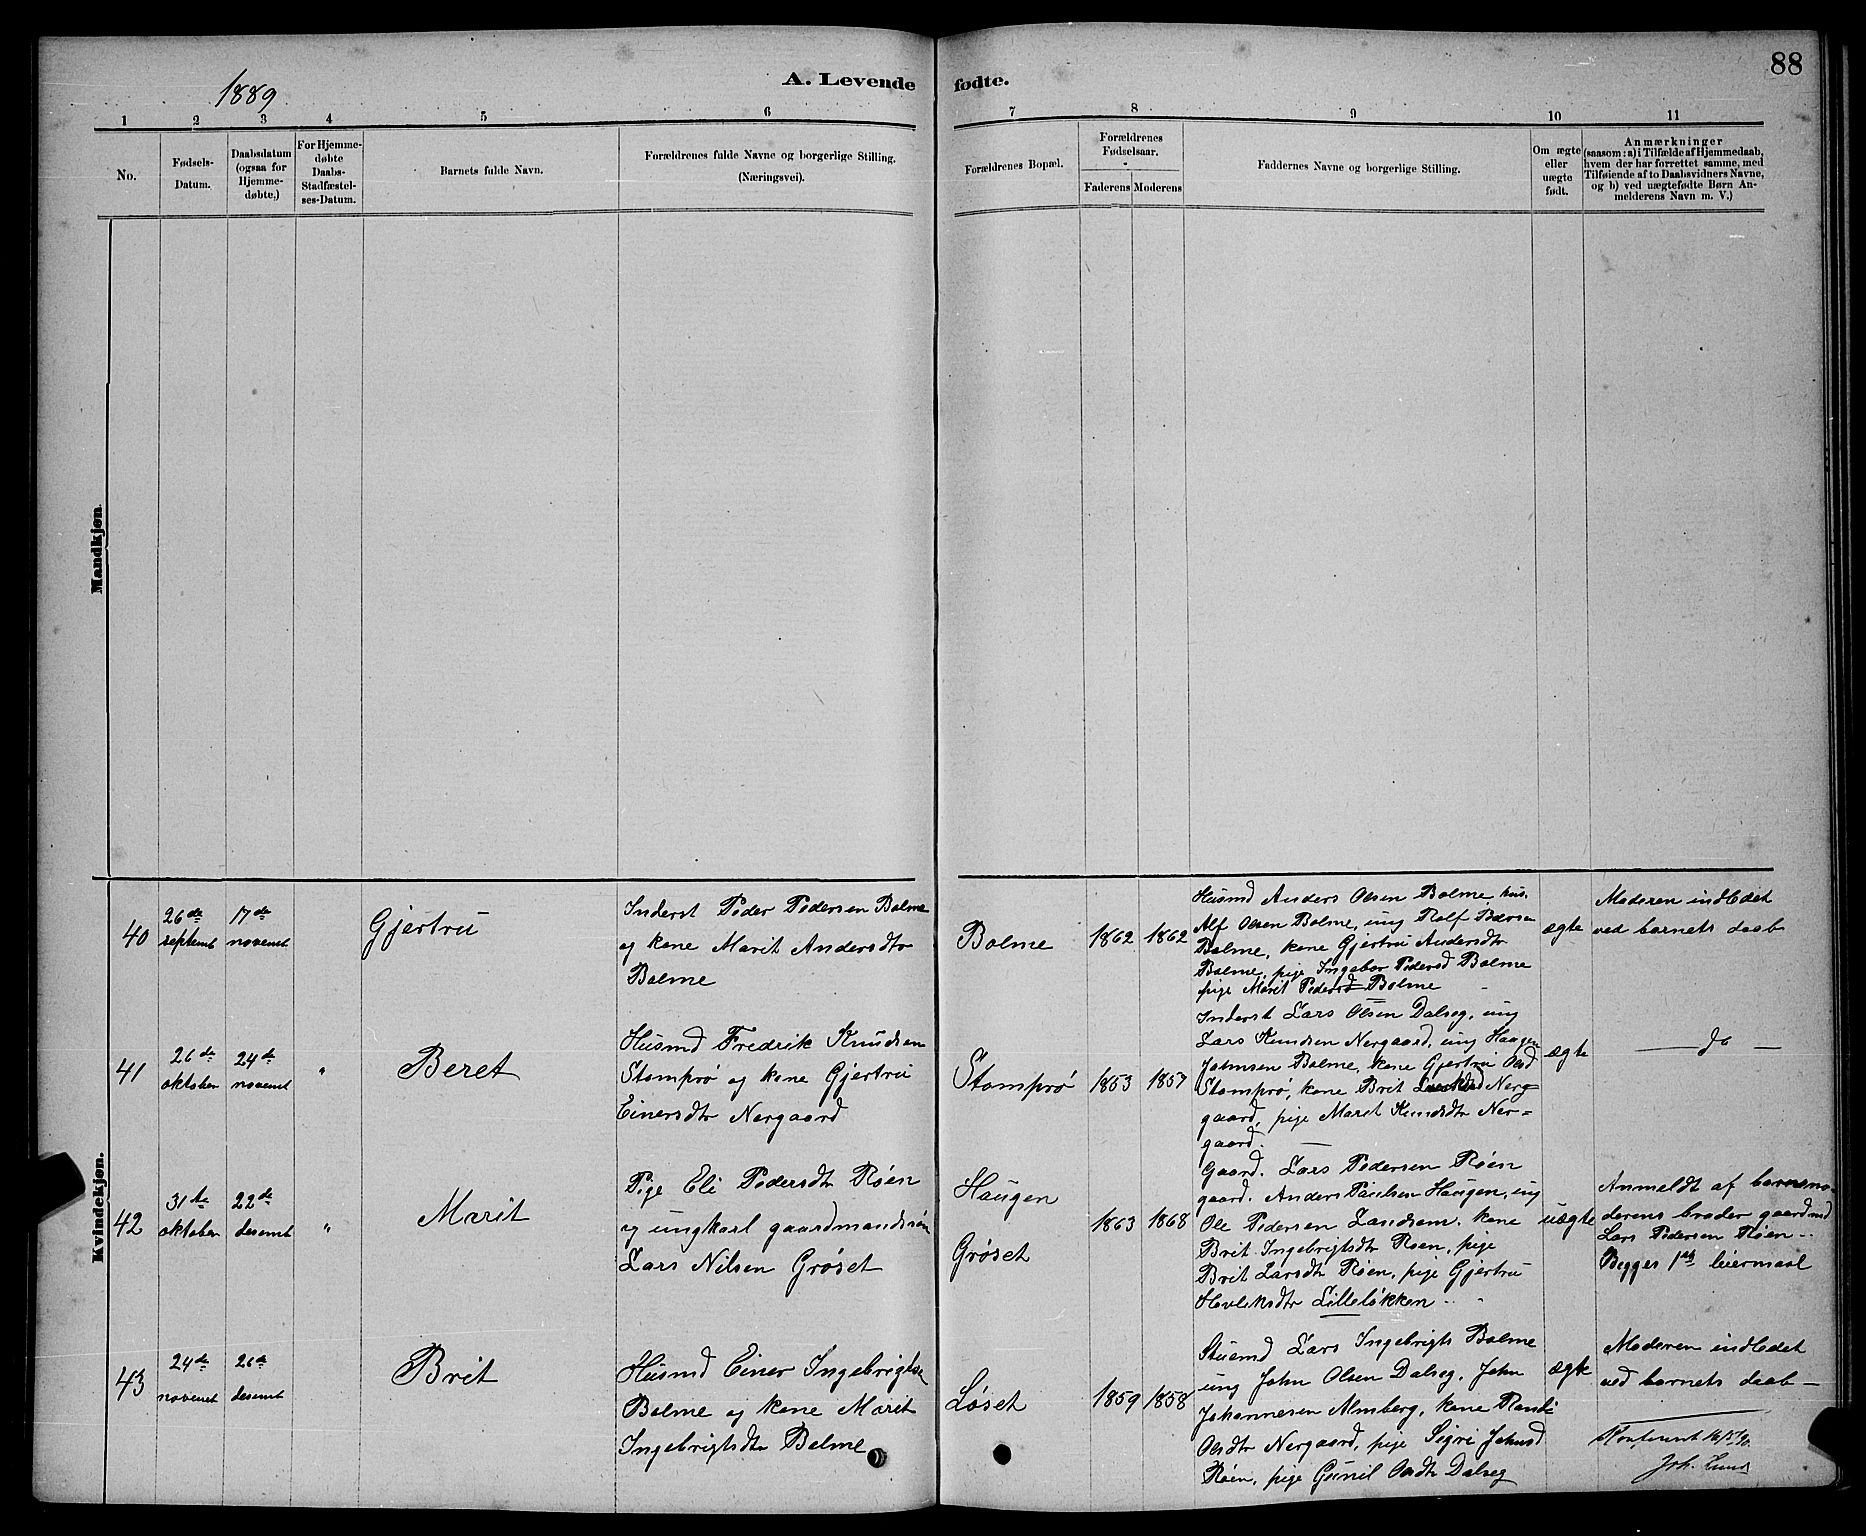 88
1889
A. Levende fødte.
1 2 3 4 5 6 7 8 9 10 11
No.
Fødsels-
Datum.
Daabsdatum
(ogsaa for
Hjemme-
døbte,)
For Hjemme-
døbte
Daabs-
Stadfæstel-
ses-Datum.
Barnets fulde Navn.
Forældrenes fulde Navne og borgerlige Stilling.
(Næringsvei).
Forældrenes Bopæl.
Forældrenes
Fødselsaar.
Faderens Moderens
Faddernes Navne og borgerlige Stilling.
Om ægte
eller
uægte
født.
Anmærkninger
(saasom: a) i Tilfælde af Hjemmedaab,
hvem der har forrettet samme, med
Tilføiende af to Daabsvidners Navne,
og b) ved uægtefødte Børn An-
melderens Navn m. V.)
Mandkjøn.
Kvindekjøn.
40
26de
septemt
17de
novemt
Gjertru
Inderst Peder Pedersen Bolme
og kone Marit Andersdtr
Bolme
Bolme
1862 1862
Husmd Anders Olsen Bolme, hus.
Alf Olsen Bolme, ung Rolf Pedersen
Bolme, kone Gjertru Andersdtr
Bolme, pige Ingebor Pedersd Bolme
pige Marit Pedersd Bolme
ægte
Moderen indledet
ved barnets daab
41
26de
oktober
24de
novemt
"
Beret
Husmd Fredrik Knudsen
Stomprø og kone Gjertru
Einersdtr Nergaard
Stomprø
1863 1857
Inderst Lars Olsen Dalseg, ung
Lars Knudsen Nergaard, ung Haagen
Johnsen Bolme, kone Gjertru Olsd
Stomprø, kone Brit Nerg-
gaard, pige Marit Knudsdtr Ner-
gaard.
ægte
— do —
42
31te
oktober
22de
desemt
"
Marit
Pige Eli Pedersdtr Røen
og ungkarl gaardmandssøn
Lars Nilsen Grøset
Haugen
Grøset
1863 1868
Gaard. Lars Pedersen Røen
gaard. Anders Paulsen Haugen, ung
Ole Pedersen Landsem, kone
Brit Ingebrigtsdtr Røen, pige
Brit Larsdtr Røen, pige Gjertru
Lilleløkken
uægte
Anmeldt af barnemo-
derens broder gaardmd
Lars Pedersen Røen
Begges 1ste leiermaal
43
24de
novemt
26de
desemt
Brit
Husmd Einer Ingebrigtsen
Bolme og kone Marit
Ingebrigtsdtr Bolme
Løset
1859 1858
Stuemd Lars Ingebrigts Bolme
ung John Olsen Dalseg, John
Johannesen Almberg, kone Randi
Olsdtr Nergaard, pige Sigri Johnsd
Røen, pige Gunil Olsdtr Dalseg
ægte
Moderen indledet
ved barnets daab —
Konfereret
Joh. Lund